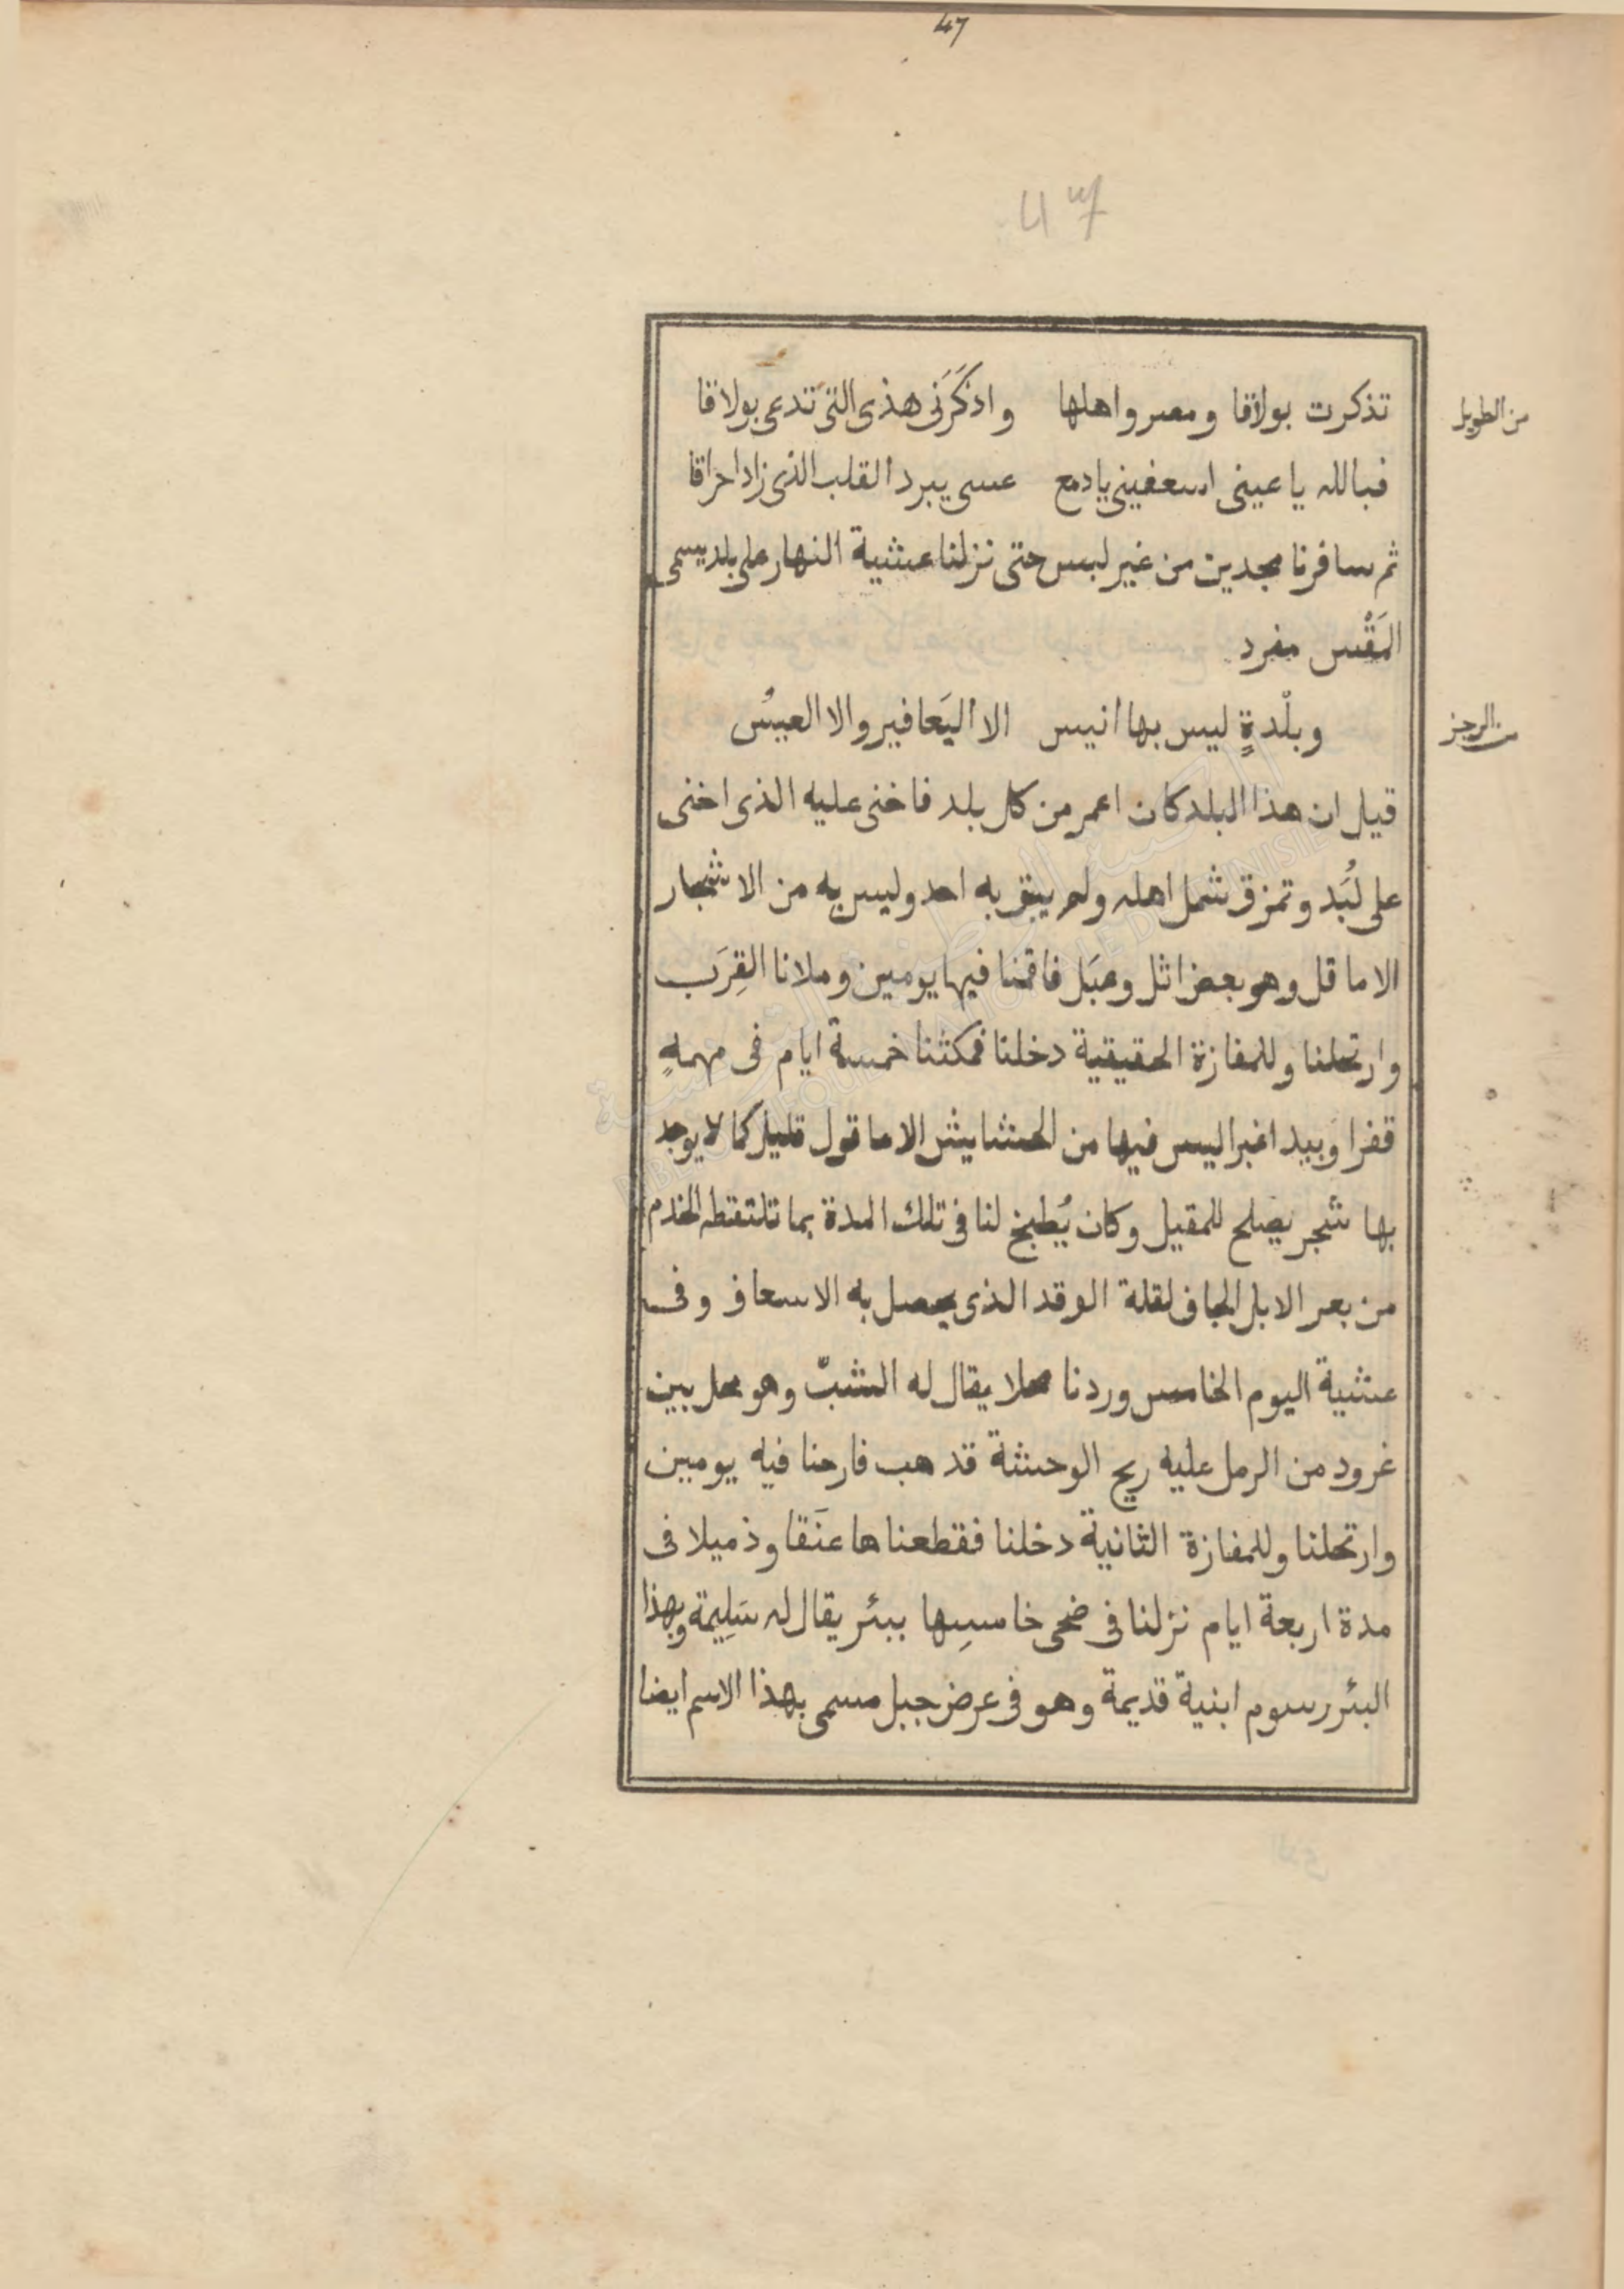 47
47
من الطويل
تذكرت بولاقا ومصر واهلها واذكَرَنى هذى التى تدعى بولاقا
فبالله يا عينى اسعفينى يا دمع عسى يبرد القلب الذى زاد احراقا
ثم سافرنا مجدين من غير لبس حتى نزلنا عشية النهار على بلد يسمى
المَقْس مفرد
من الرجز
وبلْدةٍ ليس بها انيس الا اليَعا فير والا العيسُ
قيل ان هذا البلد كان اعمر من كل بلد فاخنى عليه الذى اخنى
على لُبَد وتمزق شمل اهله ولم يبق به احد وليس به من الاشجار
الا ما قل وهو بعض اثل وعبَل فاقمنا فيها يومين وملانا القِرَب
وارتحلنا وللمفازة الحقيقية دخلنا فمكثنا خمسة ايام فى مهمهٍ
قفرا وبيد اغبرا ليس فيها من الحشايش الا ما قول قليل كما لا يوجد
بها شجر يصلح للمقيل وكان يُطبخ لنا فى تلك المدة بما تلتقطه الخدم
من بعر الابل الجاف لقلة الوقد الذى يحصل به الاسعاف وفى
عشية اليوم الخامس وردنا محلا يقال له الشبّ وهو محل بين
غرود من الرمل عليه ريح الوحشة قد هب فارحنا فيه يومين
وارتحلنا وللمفازة الثانية دخلنا فقطعنا ها عنَقا وذميلا فى
مدة اربعة ايام نزلنا فى ضحى خامسِها ببئر يقال له سَلِيمة وبهذا
البئر رسوم ابنية قديمة وهو فى عرض جبل مسمى بهذا الاسم ايضا